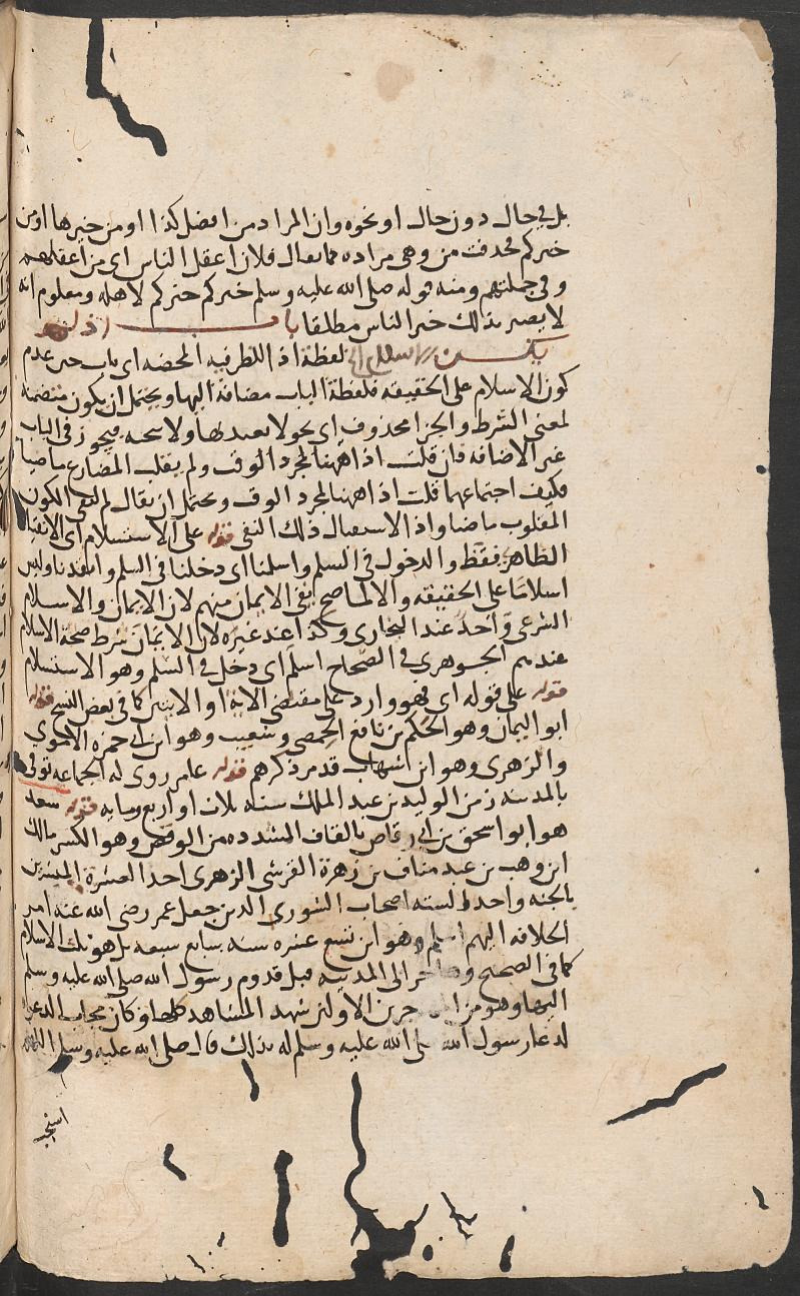 بل في حال دون حال او نحوه وان المراد من افضل كذا او من خيرها او من
خيركم فحذفت من وهي مراده كما يقال فلان اعقل الناس اي من اعقلهم
وفي جملتهم ومنه قوله صلى الله عليه وسلم خيركم خيركم لاهله ومعلوم انه
لا يصير بذلك خير الناس مطلقا باب اذا لم
يكن الاسلام لفظة اذا للظرفيه المحضه اي باب حين عدم
كون الاسلام على الحقيقه فلفظة الباب مضافة اليها ويحتمل ان يكون متضمنه
لمعنى الشرط والجزا محذوف اي نحو لا يعتد بها ولا ينجيه فيجوز في الباب
غير الاضافه فان قلت اذا ههنا لمجرد الوقت ولم يقلب المضارع ماضيا
فكيف اجتماعهما قلت اذا ههنا لمجرد الوقت ويحتمل ان يقال لم لنفي الكون
المقلوب ماضيا واذا لاستقبال ذلك النفي قوله على الاستسلام اي الانقياد
الظاهر فقط والدخول في السلم واسلمنا اي دخلنا في السلم وانقدنا وليس
اسلاما على الحقيقه والا لما صح نفي الايمان منهم لان الايمان والاسلام
الشرعي واحد عند البخاري وكذا عند غيره لان الايمان شرط صحة الاسلام
عندهم الجوهري في الصحاح اسلم اي دخل في السلم وهو الاستسلام
قوله على قوله اي فهو وارد على مقتضى الاية او الايتين كما في بعض النسخ قوله
ابو اليمان وهو الحكم بن نافع الحمصي وشعيب وهو ابن ابي حمزه الاموي
والزهري وهو ابن شهاب قد مر ذكرهم قوله عامر روى له الجماعه توفي
بالمدينه زمن الوليد بن عبد الملك سنه ثلاث او اربع ومايه قوله سعد
هو ابو اسحق بن ابي وقاص بالقاف المشدده من الوقص وهو الكسر مالك
ابن وهب بن عبد مناف بن زهرة القرشي الزهري احد العشرة المبشرين
بالجنه واحد الستة اصحاب الشورى الذين جعل عمر رضي الله عنه امر
الخلافه اليهم اسلم وهو ابن تسع عشره سنه سابع سبعه بل هو ثلث الاسلام
كما في الصحيح وهاجر الى المدينه قبل قدوم رسول الله صلى الله عليه وسلم
اليها وهو من المهاجرين الاولين شهد المشاهد كلها وكان مجاب الدعوة
لدعا رسول الله صلى الله عليه وسلم له بذلك قال صلى الله عليه وسلم اللهم
استجب